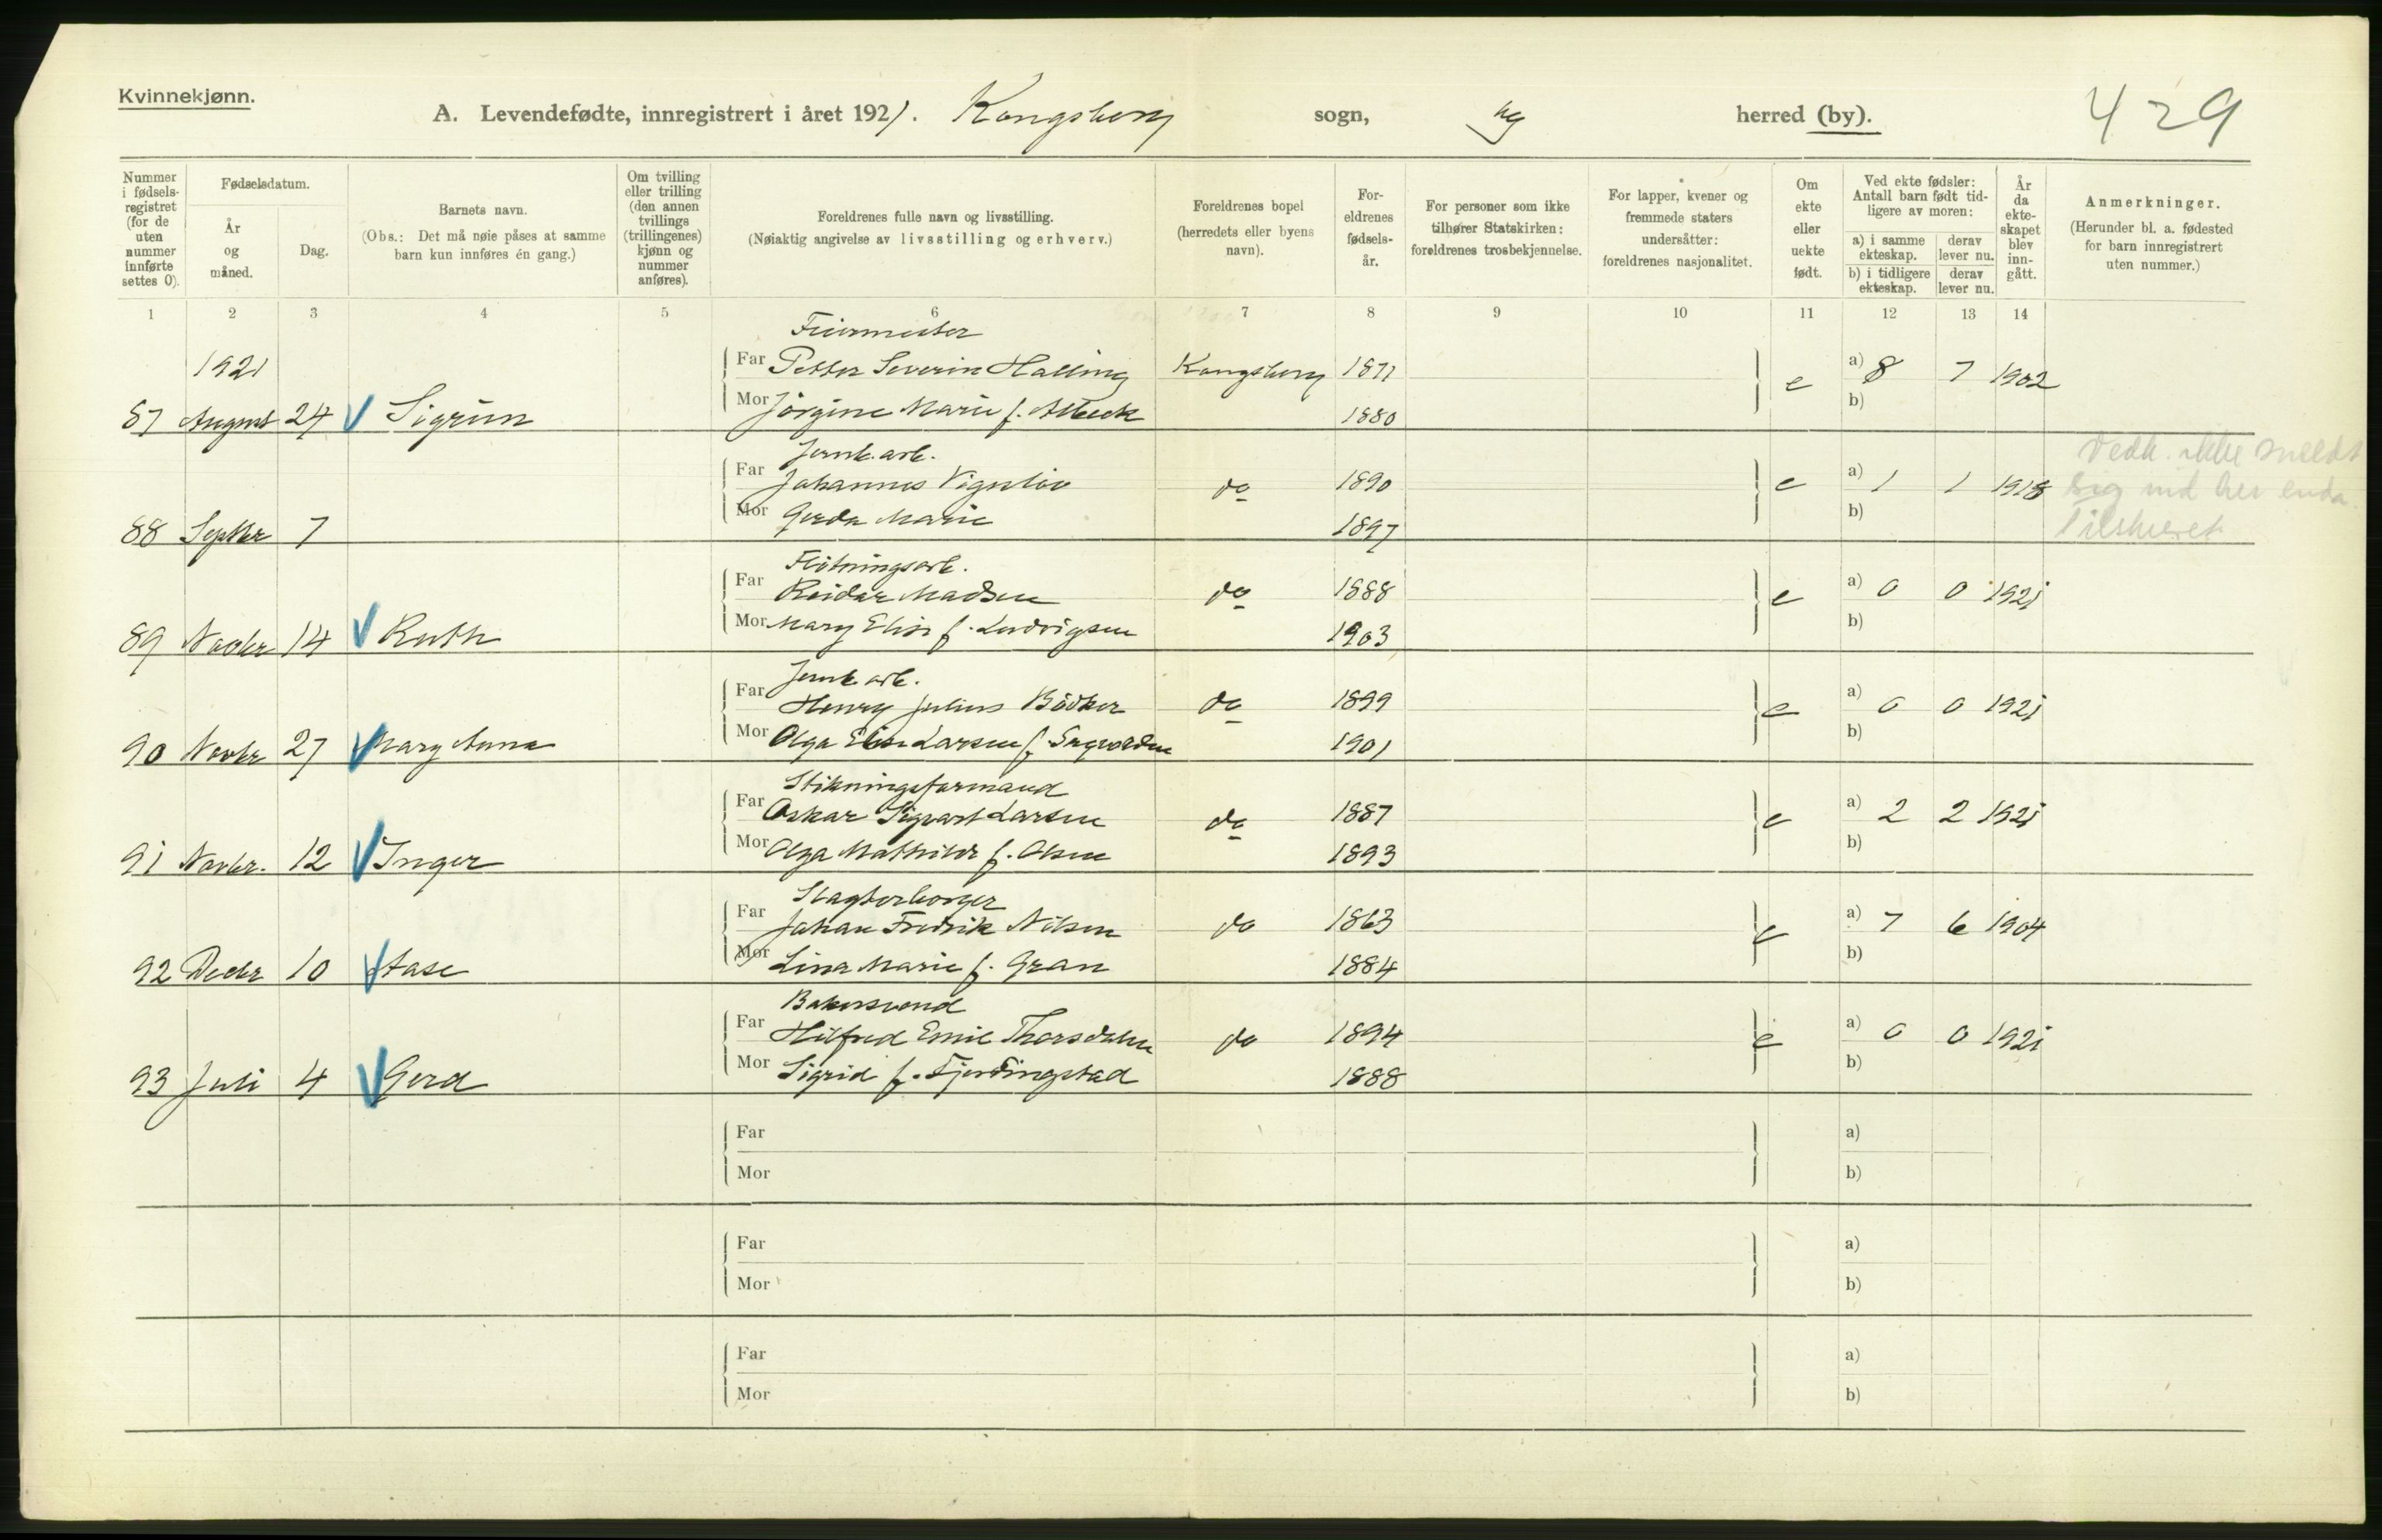 Kvinnekjønn.
A. Levendefødte, innregistrert i året 1921. Kongsberg sogn, herred (by). 429
Nummer i fødselsregistret (for de uten nummer innførte settes 0).
Fødselsdatum.
År og måned.
Dag.
Barnets navn.
(Obs.: Det må nøie påses at samme barn kun innføres én gang.)
Om tvilling eller trilling (den annen tvillings (trillingenes) kjønn og nummer anføres).
Foreldrenes fulle navn og livsstilling.
(Nøiaktig angivelse av livsstilling og erhverv.)
Foreldrenes bopel (herredets eller byens navn).
Foreldrenes fødselsår.
For personer som ikke tilhører Statskirken: foreldrenes trosbekjennelse.
For lapper, kvener og fremmede staters undersåtter: foreldrenes nasjonalitet.
Om ekte eller uekte født.
Ved ekte fødsler: Antall barn født tidligere av moren:
a) i samme ekteskap. derav lever nu.
b) i tidligere ekteskap. derav lever nu.
År da ekteskapet blev inngått.
Anmerkninger.
(Herunder bl. a. fødested for barn innregistrert uten nummer.)
1 2 3 4 5 6 7 8 9 10 11 12 13 14
Feiermester
1921 Far Petter Severin Halling Kongsberg 1871 e a) 8 7 1902
87 August 24 Sigrun Mor Jörgine Marie f. 1880 b)
Jernb.arb.
Far Johannes do 1890 e a) 1 1 1918
88 Septbr 7 Mor Gerda Marie 1897 b)
Vedk. ikke meldt
sig ind her enda.
Tilskrevet
Flötningsarb.
Far Reidar Madsen do 1888 e a) 0 0 1921
89 Novbr 14 Ruth Mor Mary Elise f. Ludvigsen 1903 b)
Jernb.arb.
Far Henry Julius Bödker do 1899 e a) 0 0 1921
90 Novbr 27 Mary Anna Mor Olga Elise Larsen f. 1901 b)
Stikningsformand
Far Oskar Sigvart Larsen do 1887 e a) 2 2 1921
91 Novbr. 12 Inger Mor Olga Mathilde f. Olsen 1893 b)
Slagterborger
Far Johan Fredrik Nilsen do 1863 e a) 7 6 1904
92 Decbr 10 Aase Mor Lina Marie f. Gran 1884 b)
Bakersvend
Far Hilfred Emil Thorsdalen do 1894 e a) 0 0 1921
93 Juli 4 Gerd Mor Sigrid f. Fjerdingstad 1888 b)
Far a)
Mor b)
Far a)
Mor b)
Far a)
Mor b)